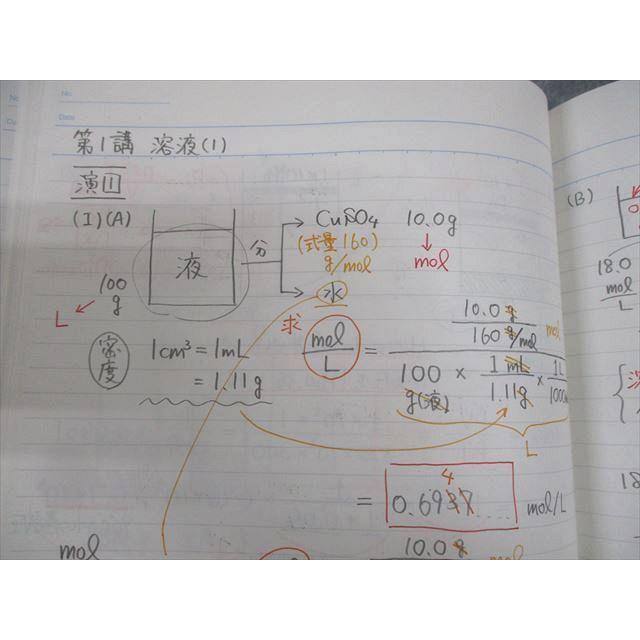 No.
Date
第1講 溶液(1)
演1
(I)(A)
液
分
CuSO4 10.0g
(式量160)
g/mol
mol
水
100
g
L
密度
1cm³ = 1mL
= 1.11g
求
mol/L = 10.0 g / 160 g/mol mol
100 g(液) × 1 mL / 1.11g × 1L / 1000
L
= 0.6937 4 mol/L
mol
10.0 g
(B)
18.0
mol
L
18